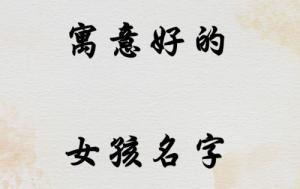 寓意好的
女孩名字